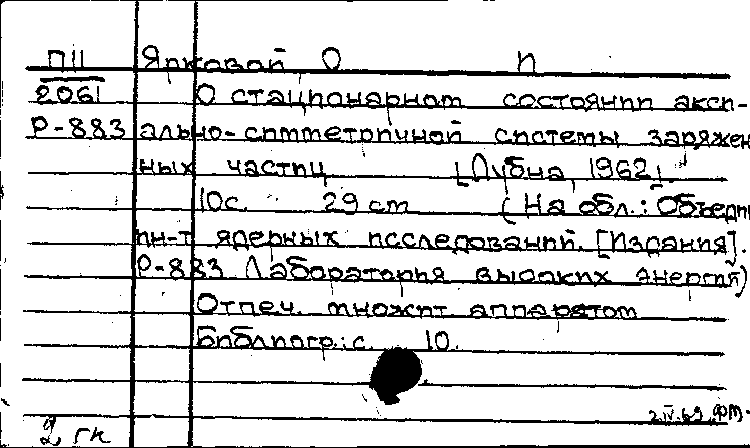 П11 Ярковой О П
2061 О стационарном состоянии акси-
Р-883 ально-симметричной системы заряжен
ных частиц [Дубна, 1962].
10с. 29 cm (На обл.: Объеди
ин-т ядерных исследований. [Издания].
Р-883 Лаборатория высоких энергий)
Отпеч. множит аппаратом
Библиогр.: с. 10.
2.IV.69
2 гк